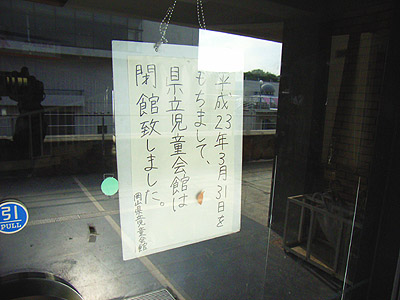 平成23年3月31日を
もちまして、
県立児童会館は
閉館致しました。
岡山県立児童会館
引
PULL